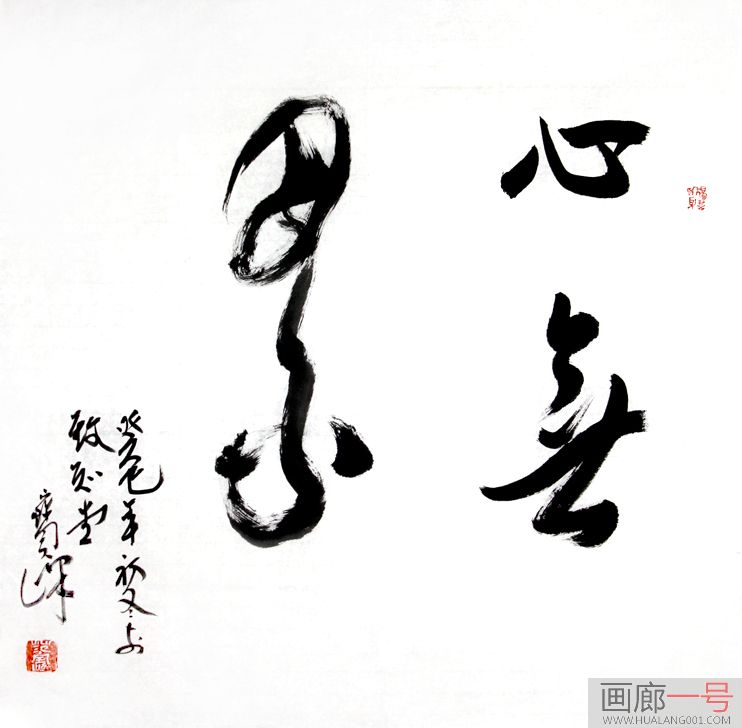 心無
累
癸巳年初冬於
致知堂
寶澤
画廊一号
WWW.HUALANG001.COM